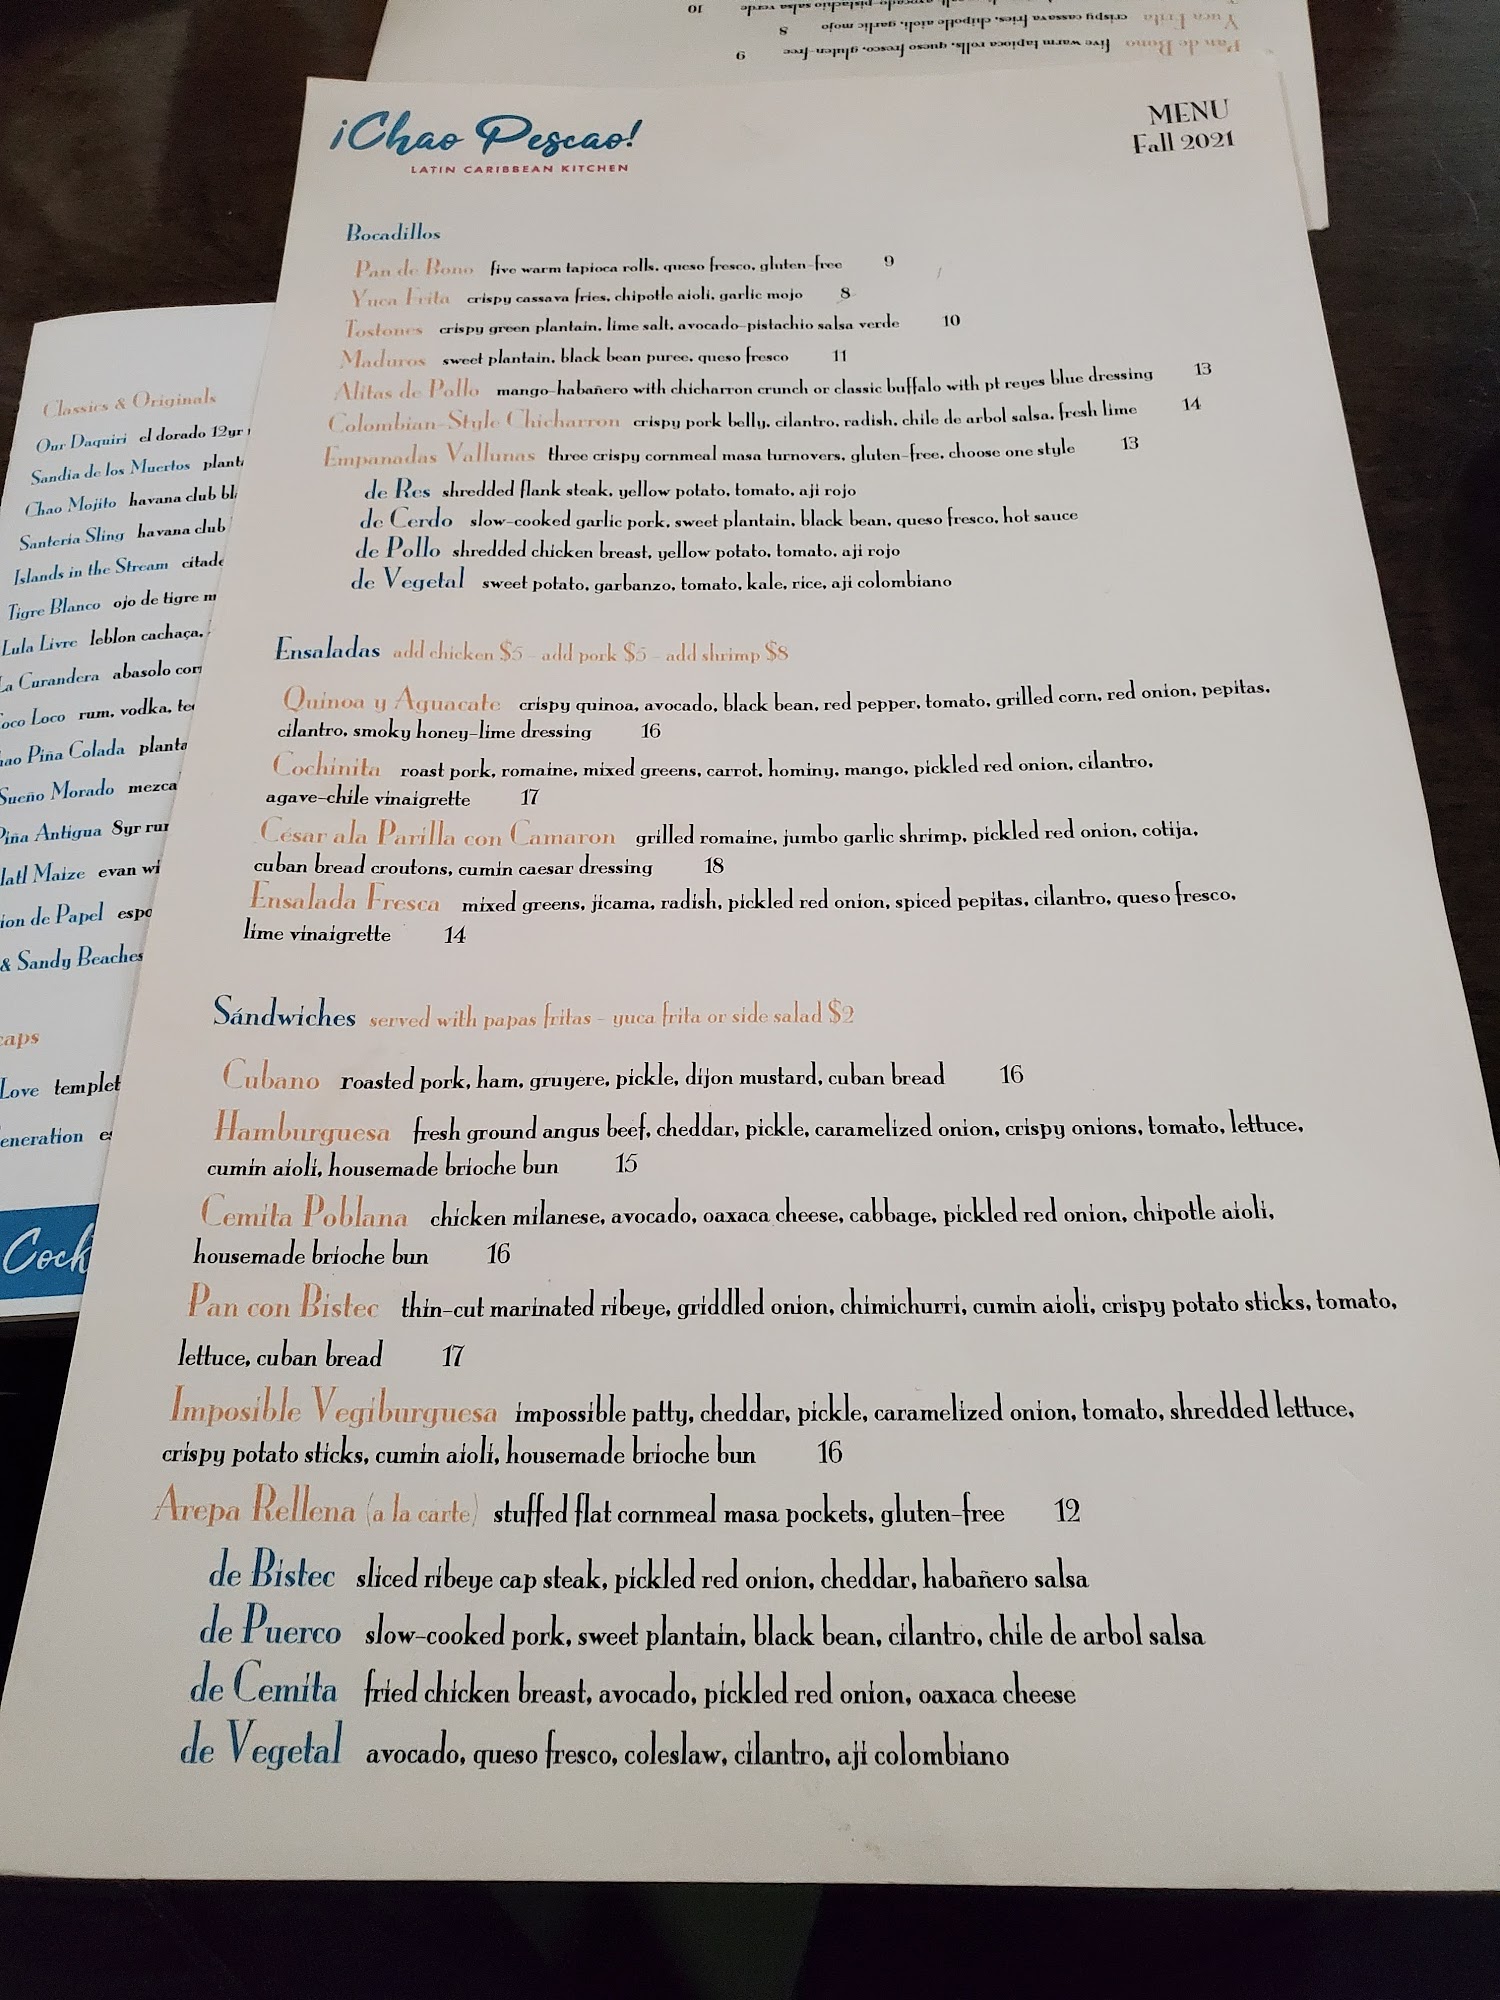 10
Yuca Frita crispy cassava fries, chipotle aioli, garlic mojo 8
Pan de Bono five warm tapioca rolls, queso fresco, gluten-free 9
¡Chao Pescao!
LATIN CARIBBEAN KITCHEN
MENU
Fall 2021
Bocadillos
Pan de Bono five warm tapioca rolls, queso fresco, gluten-free 9
Yuca Frita crispy cassava fries, chipotle aioli, garlic mojo 8
Tostones crispy green plantain, lime salt, avocado-pistachio salsa verde 10
Maduros sweet plantain, black bean puree, queso fresco 11
Alitas de Pollo mango-habañero with chicharron crunch or classic buffalo with pt reyes blue dressing 13
Colombian-Style Chicharron crispy pork belly, cilantro, radish, chile de arbol salsa, fresh lime 14
Empanadas Vallunas three crispy cornmeal masa turnovers, gluten-free, choose one style 13
de Res shredded flank steak, yellow potato, tomato, aji rojo
de Cerdo slow-cooked garlic pork, sweet plantain, black bean, queso fresco, hot sauce
de Pollo shredded chicken breast, yellow potato, tomato, aji rojo
de Vegetal sweet potato, garbanzo, tomato, kale, rice, aji colombiano
Ensaladas add chicken $5 - add pork $5 - add shrimp $8
Quinoa y Aguacate crispy quinoa, avocado, black bean, red pepper, tomato, grilled corn, red onion, pepitas,
cilantro, smoky honey-lime dressing 16
Cochinita roast pork, romaine, mixed greens, carrot, hominy, mango, pickled red onion, cilantro,
agave-chile vinaigrette 17
César ala Parilla con Camaron grilled romaine, jumbo garlic shrimp, pickled red onion, cotija,
cuban bread croutons, cumin caesar dressing 18
Ensalada Fresca mixed greens, jicama, radish, pickled red onion, spiced pepitas, cilantro, queso fresco,
lime vinaigrette 14
Sándwiches served with papas fritas - yuca frita or side salad $2
Cubano roasted pork, ham, gruyere, pickle, dijon mustard, cuban bread 16
Hamburguesa fresh ground angus beef, cheddar, pickle, caramelized onion, crispy onions, tomato, lettuce,
cumin aioli, housemade brioche bun 15
Cemita Poblana chicken milanese, avocado, oaxaca cheese, cabbage, pickled red onion, chipotle aioli,
housemade brioche bun 16
Pan con Bistec thin-cut marinated ribeye, griddled onion, chimichurri, cumin aioli, crispy potato sticks, tomato,
lettuce, cuban bread 17
Imposible Vegiburguesa impossible patty, cheddar, pickle, caramelized onion, tomato, shredded lettuce,
crispy potato sticks, cumin aioli, housemade brioche bun 16
Arepa Rellena (a la carte) stuffed flat cornmeal masa pockets, gluten-free 12
de Bistec sliced ribeye cap steak, pickled red onion, cheddar, habañero salsa
de Puerco slow-cooked pork, sweet plantain, black bean, cilantro, chile de arbol salsa
de Cemita fried chicken breast, avocado, pickled red onion, oaxaca cheese
de Vegetal avocado, queso fresco, coleslaw, cilantro, aji colombiano
Classics & Originals
Our Daquiri el dorado 12yr
Sandia de los Muertos plant
Chao Mojito havana club bl
Santeria Sling havana club
Islands in the Stream citade
Tigre Blanco ojo de tigre m
Lula Livre leblon cachaça,
La Curandera abasolo cor
oco Loco rum, vodka, te
hao Piña Colada planta
Sueño Morado mezca
Piña Antigua 8yr rur
latl Maize evan wi
ion de Papel espo
& Sandy Beaches
caps
Love templet
eneration es
Cock